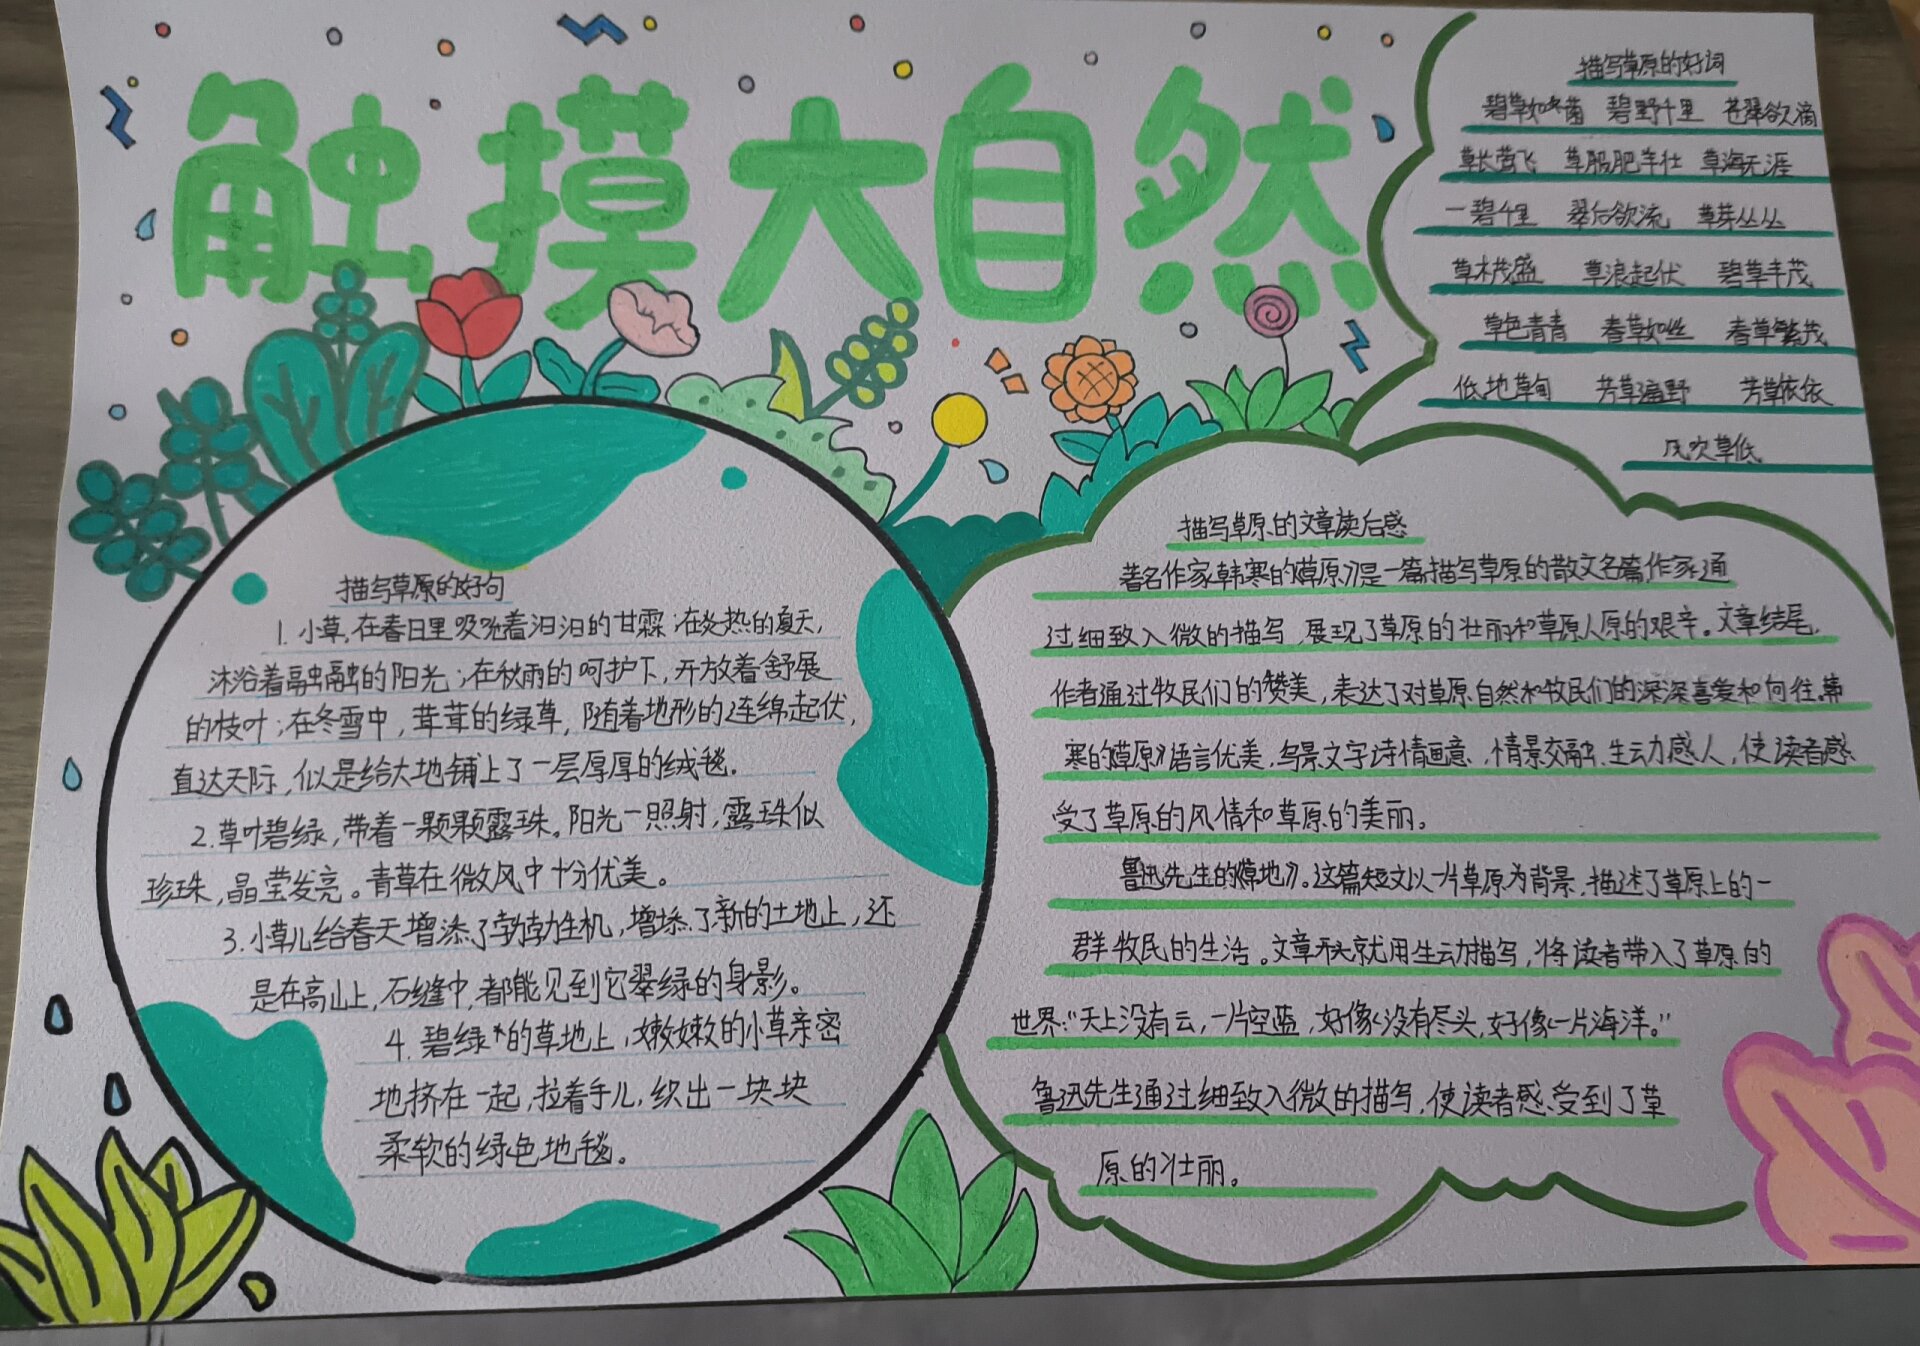 触摸大自然
描写草原的好词
碧草如茵 碧野千里 苍翠欲滴
草长莺飞 草肥羊壮 草海无涯
一碧千里 翠色欲流 草芽丛丛
草木茂盛 草浪起伏 碧草丰茂
草色青青 春草如丝 春草繁茂
低地草甸 芳草遍野 芳草依依
风吹草低
描写草原的好句
1.小草,在春日里吸吮着汩汩的甘霖;在炎热的夏天,
沐浴着融融的阳光;在秋雨的呵护下,开放着舒展
的枝叶;在冬雪中,茸茸的绿草,随着地形的连绵起伏,
直达天际,似是给大地铺上了一层厚厚的绒毯.
2.草叶碧绿,带着一颗颗露珠。阳光一照射,露珠似
珍珠,晶莹发亮。青草在微风中十分优美。
3.小草儿给春天增添了勃勃生机,增添了新的土地上,还
是在高山上,石缝中,都能见到它翠绿的身影。
4.碧绿的草地上,嫩嫩的小草亲密
地挤在一起,拉着手儿,织出一块块
柔软的绿色地毯。
描写草原的文章读后感
著名作家韩寒的《草原》是一篇描写草原的散文名篇作家通
过细致入微的描写,展现了草原的壮丽和草原人原的艰辛。文章结尾,
作者通过牧民们的赞美,表达了对草原自然和牧民们的深深喜爱和向往.韩
寒的《草原》语言优美,写景文字诗情画意,情景交融,生动感人,使读者感
受了草原的风情和草原的美丽。
鲁迅先生的《草地》。这篇短文以一片草原为背景,描述了草原上的一
群牧民的生活。文章开头就用生动描写,将读者带入了草原的
世界:“天上没有云,一片空蓝,好像没有尽头,好像一片海洋。”
鲁迅先生通过细致入微的描写,使读者感受到了草
原的壮丽。